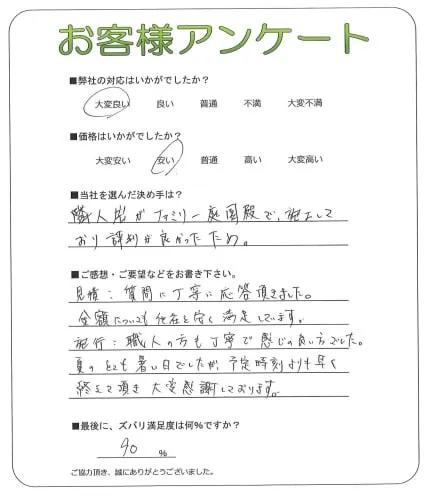 お客様アンケート
■弊社の対応はいかがでしたか？
大変良い 良い 普通 不満 大変不満
■価格はいかがでしたか？
大変安い 安い 普通 高い 大変高い
■当社を選んだ決め手は？
職人岩がファミリー庭園殿で、施工して
おり評判が良かったため。
■ご感想・ご要望などをお書き下さい。
見積：質問に丁寧に応答頂きました。
金額についても他社と安く満足しています。
施行：職人の方も丁寧で感じの良い方でした。
夏のとても暑い日でしたが、予定時刻よりも早く
終えて頂き大変感謝しております。
■最後に、ズバリ満足度は何％ですか？
90 ％
ご協力頂き、誠にありがとうございました。